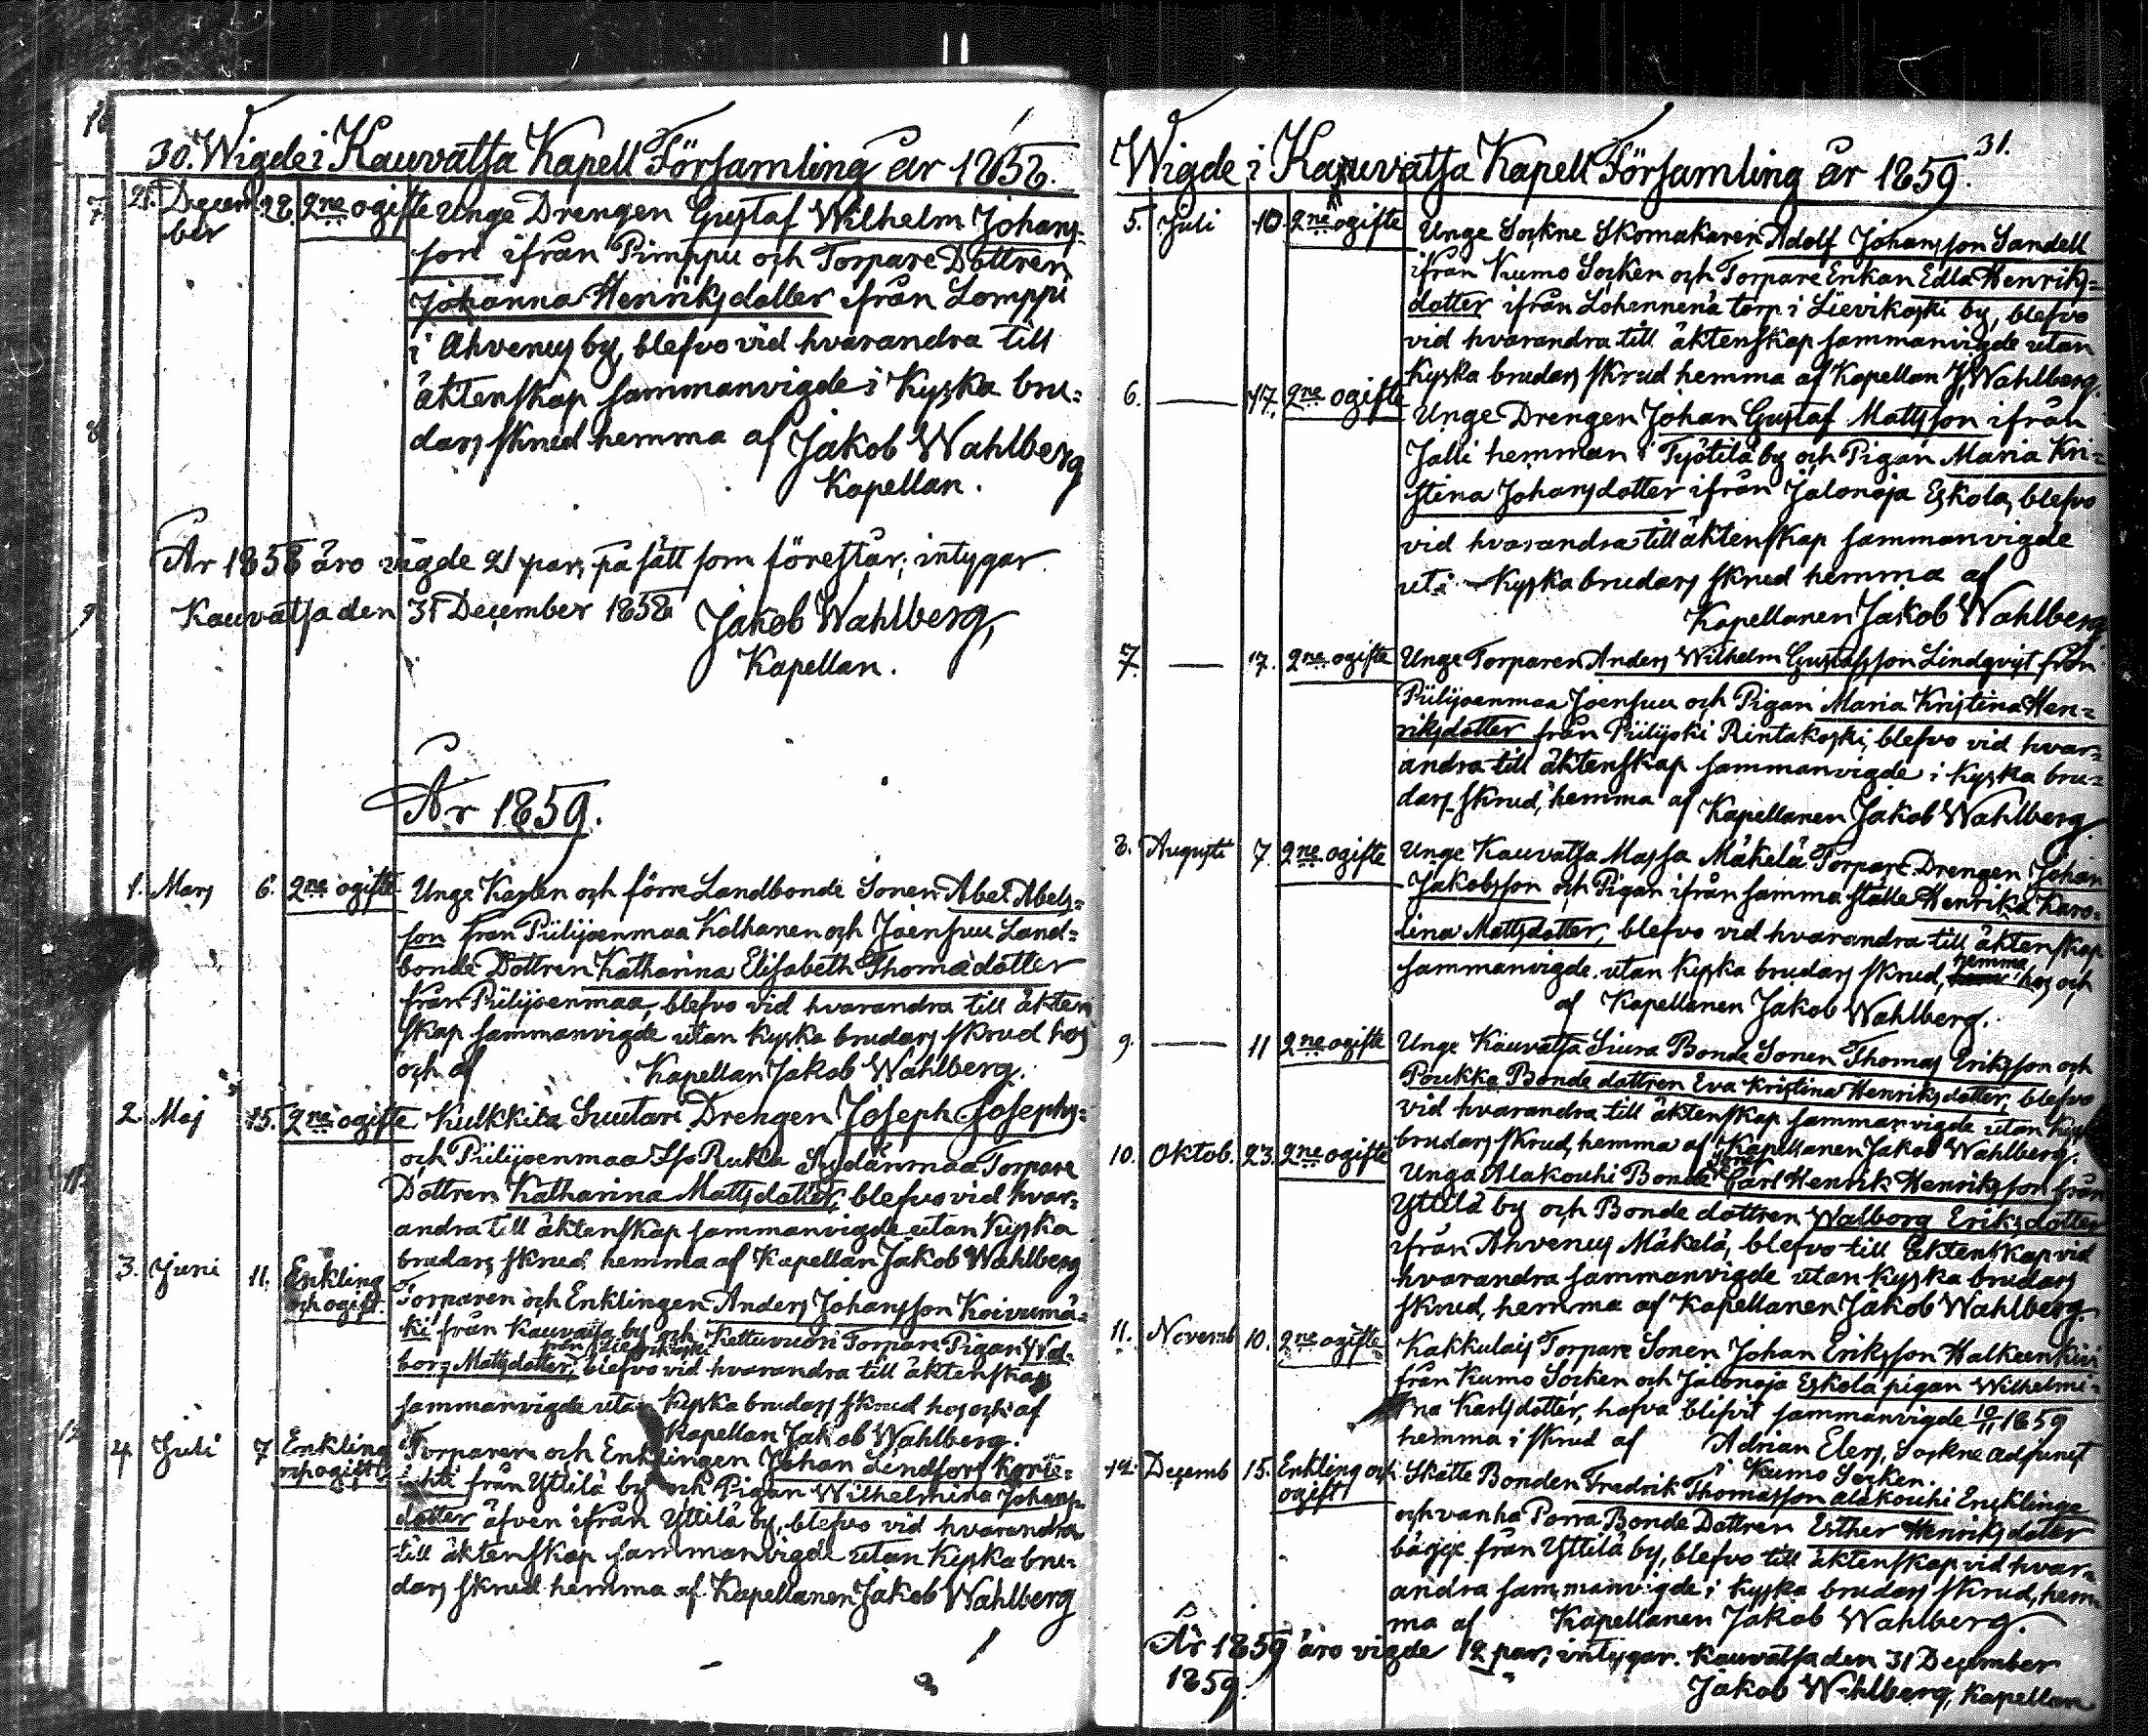 30. Wigde i Kauvatsa Kapell Församling år 1858.
21. Decem- 28. 2ne ogifte Unge Drengen Gustaf Wilhelm Johans-
ber
son ifrån Pimppu och Torpare Dottren
Johanna Henriksdotter ifrån Lomppi
i Ahvenus by, blefvo vid hvarandra till
äktenskap sammanvigde i Kyska bru-
dars skrud hemma af Jakob Wahlberg
Kapellan.
År 1858 äro vigde 21 par, på sätt som förestår; intygar
Kauvatsa den 31 December 1858 Jakob Wahlberg,
Kapellan.
År 1859.
1. Mars 6. 2ne ogifte Unge Karlen och förre Landbonde Sonen Abel Abels-
son från Piilijoenmaa Kalhanen och Joensuu Land-
bonde Dottren Katharina Elisabeth Thomädotter
från Piilijoenmaa, blefvo vid hvarandra till äkten
skap sammanvigde utan Kyska brudars skrud hos
och af Kapellan Jakob Wahlberg.
2. Maj 15. 2ne ogifte Kulkkila Suutari Drengen Joseph Josephs-
och Piilijoenmaa Iso Ruka Sydänmaa Torpare
Dottren Katharina Mattsdotter, blefvo vid hvar-
andra till äktenskap sammanvigde utan Kyska
brudars skrud hemma af Kapellan Jakob Wahlberg
3. Juni 11. Enkling och ogift. Torparen och Enklingen Anders Johansson Koivumä-
ki från Kauvatsa by och Kettuvuori Torpare Pigan Wal-
borg Mattsdotter, blefvo vid hvarandra till äktenskap
sammanvigde utan Kyska brudars skrud hos och af
Kapellan Jakob Wahlberg.
4. Juli 7 Enkling och ogift Torparen och Enklingen Johan Lendfors Korte-
från Yttilä by och Pigan Wilhelmina Johans-
dotter äfven ifrån Yttilä by, blefvo vid hvarandra
till äktenskap sammanvigde utan Kyska bru-
dars skrud hemma af Kapellanen Jakob Wahlberg
Wigde i Kauvatsa Kapell Församling år 1859. 31.
5. Juli 10. 2ne ogifte Unge Sockne Skomakaren Adolf Johansson Sandell
ifrån Kumo Socken och Torpare Enkan Edla Henriks-
dotter ifrån Löhennenä torp i Lievikoski by, blefvo
vid hvarandra till äktenskap sammanvigde utan
Kyska brudars skrud hemma af Kapellan J. Wahlberg.
6. — 17. 2ne ogifte Unge Drengen Johan Gustaf Mattsson ifrån
Jalli hemman i Työtilä by och Pigan Maria Kri-
stina Johansdotter ifrån Jalonoja Eskola, blefvo
vid hvarandra till äktenskap sammanvigde
uti Kyska brudars skrud hemma af
Kapellanen Jakob Wahlberg
7. — 17. 2ne ogifte Unge Torparen Anders Wilhelm Gustafsson Lindqvist från
Piilijoenmaa Joensuu och Pigan Maria Kristina Hen-
riksdotter från Piilijoki Rintakoski, blefvo vid hvar-
andra till äktenskap sammanvigde i Kyska bru-
dars skrud, hemma af Kapellanen Jakob Wahlberg.
8. Augusti 7. 2ne ogifte Unge Kauvatsa Massa Mäkelä Torpare Drengen Johan
Jakobsson och Pigan ifrån samma ställe Henrika Karo-
lina Mattsdotter, blefvo vid hvarandra till äktenskap
sammanvigde utan Kyska brudars skrud, hemma hos och
af Kapellanen Jakob Wahlberg.
9. — 11 2ne ogifte Unge Kauvatsa Siura Bonde Sonen Thomas Eriksson och
Poukka Bonde dottren Eva Kristina Henriksdotter, blefvo
vid hvarandra till äktenskap sammanvigde utan Kyska
brudars skrud, hemma af Kapellanen Jakob Wahlberg.
10. Oktob. 23. 2ne ogifte Unga Alakouhi Bonde Sonen Carl Henrik Henriksson från
Yttilä by och Bonde dottren Walborg Eriksdotter
ifrån Ahvenus Mäkelä, blefvo till Äktenskap vid
hvarandra sammanvigde utan Kyska brudars
skrud, hemma af Kapellanen Jakob Wahlberg.
11. Novemb 10. 2ne ogifte Kakkulais Torpare Sonen Johan Eriksson Halkeenkivi
från Kumo Socken och Jalonoja Eskola pigan Wilhelmi-
na Karlsdotter, hafva blifvit sammanvigde 10/11 1859
hemma i skrud af Adrian Elers, Sockne adjunct
i Kumo Socken.
12. Decemb 15. Enkling och ogift Skatte Bonden Fredrik Thomasson Alakouhi Encklinge
och vanha Parra Bonde Dottren Esther Henriksdoter
bägge från Yttilä by, blefvo till äktenskap vid hvar-
andra sammanvigde i Kyska brudars skrud, hem-
ma af Kapellanen Jakob Wahlberg.
År 1859 äro vigde 12 par; intygar. Kauvatsa den 31 December
1859. Jakob Wahlberg, Kapellan